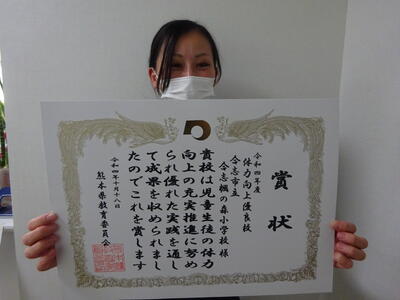 賞状
令和四年度
体力向上優良校
合志市立
合志楓の森小学校様
貴校は児童生徒の体力
向上の充実推進に努め
られ優れた実践を通し
て成果を収められまし
たのでこれを賞します
令和四年十月十八日
熊本県教育委員会